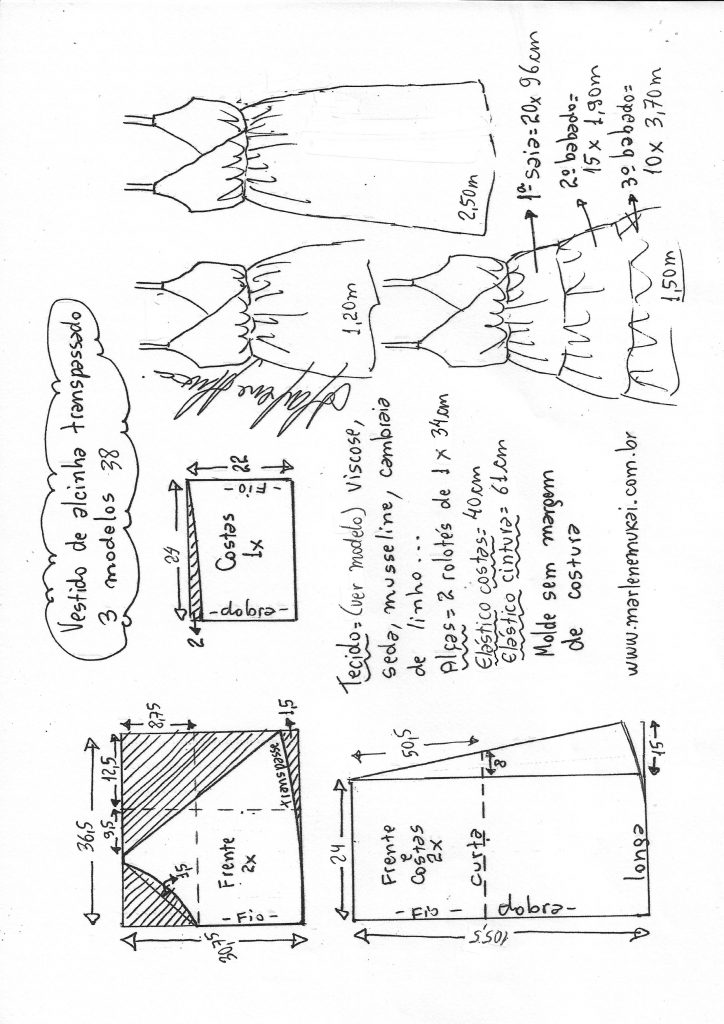 Vestido de alcinha transpassado
3 modelos 38
36,5
9,5
12,5
8,75
30,75
3,5
Frente
2x
- Fio -
transpasse
1,5
24
2
22
Costas
1x
- Fio -
dobra-
1,20m
2,50m
1ª saia=20x 96cm
2º babado=
15 x 1,90m
3º babado=
10x 3,70m
1,50m
Tecido=(ver modelo) viscose,
seda, musseline, cambraia
de linho...
Alças=2 rolotés de 1 x 34cm
Elástico costas=40cm
Elástico cintura=61cm
Molde sem margem
de costura
www.marlenemukai.com.br
24
50,5
8
Frente
e
Costas
2x
curta
- Fio -
dobra-
longa
105,5
15